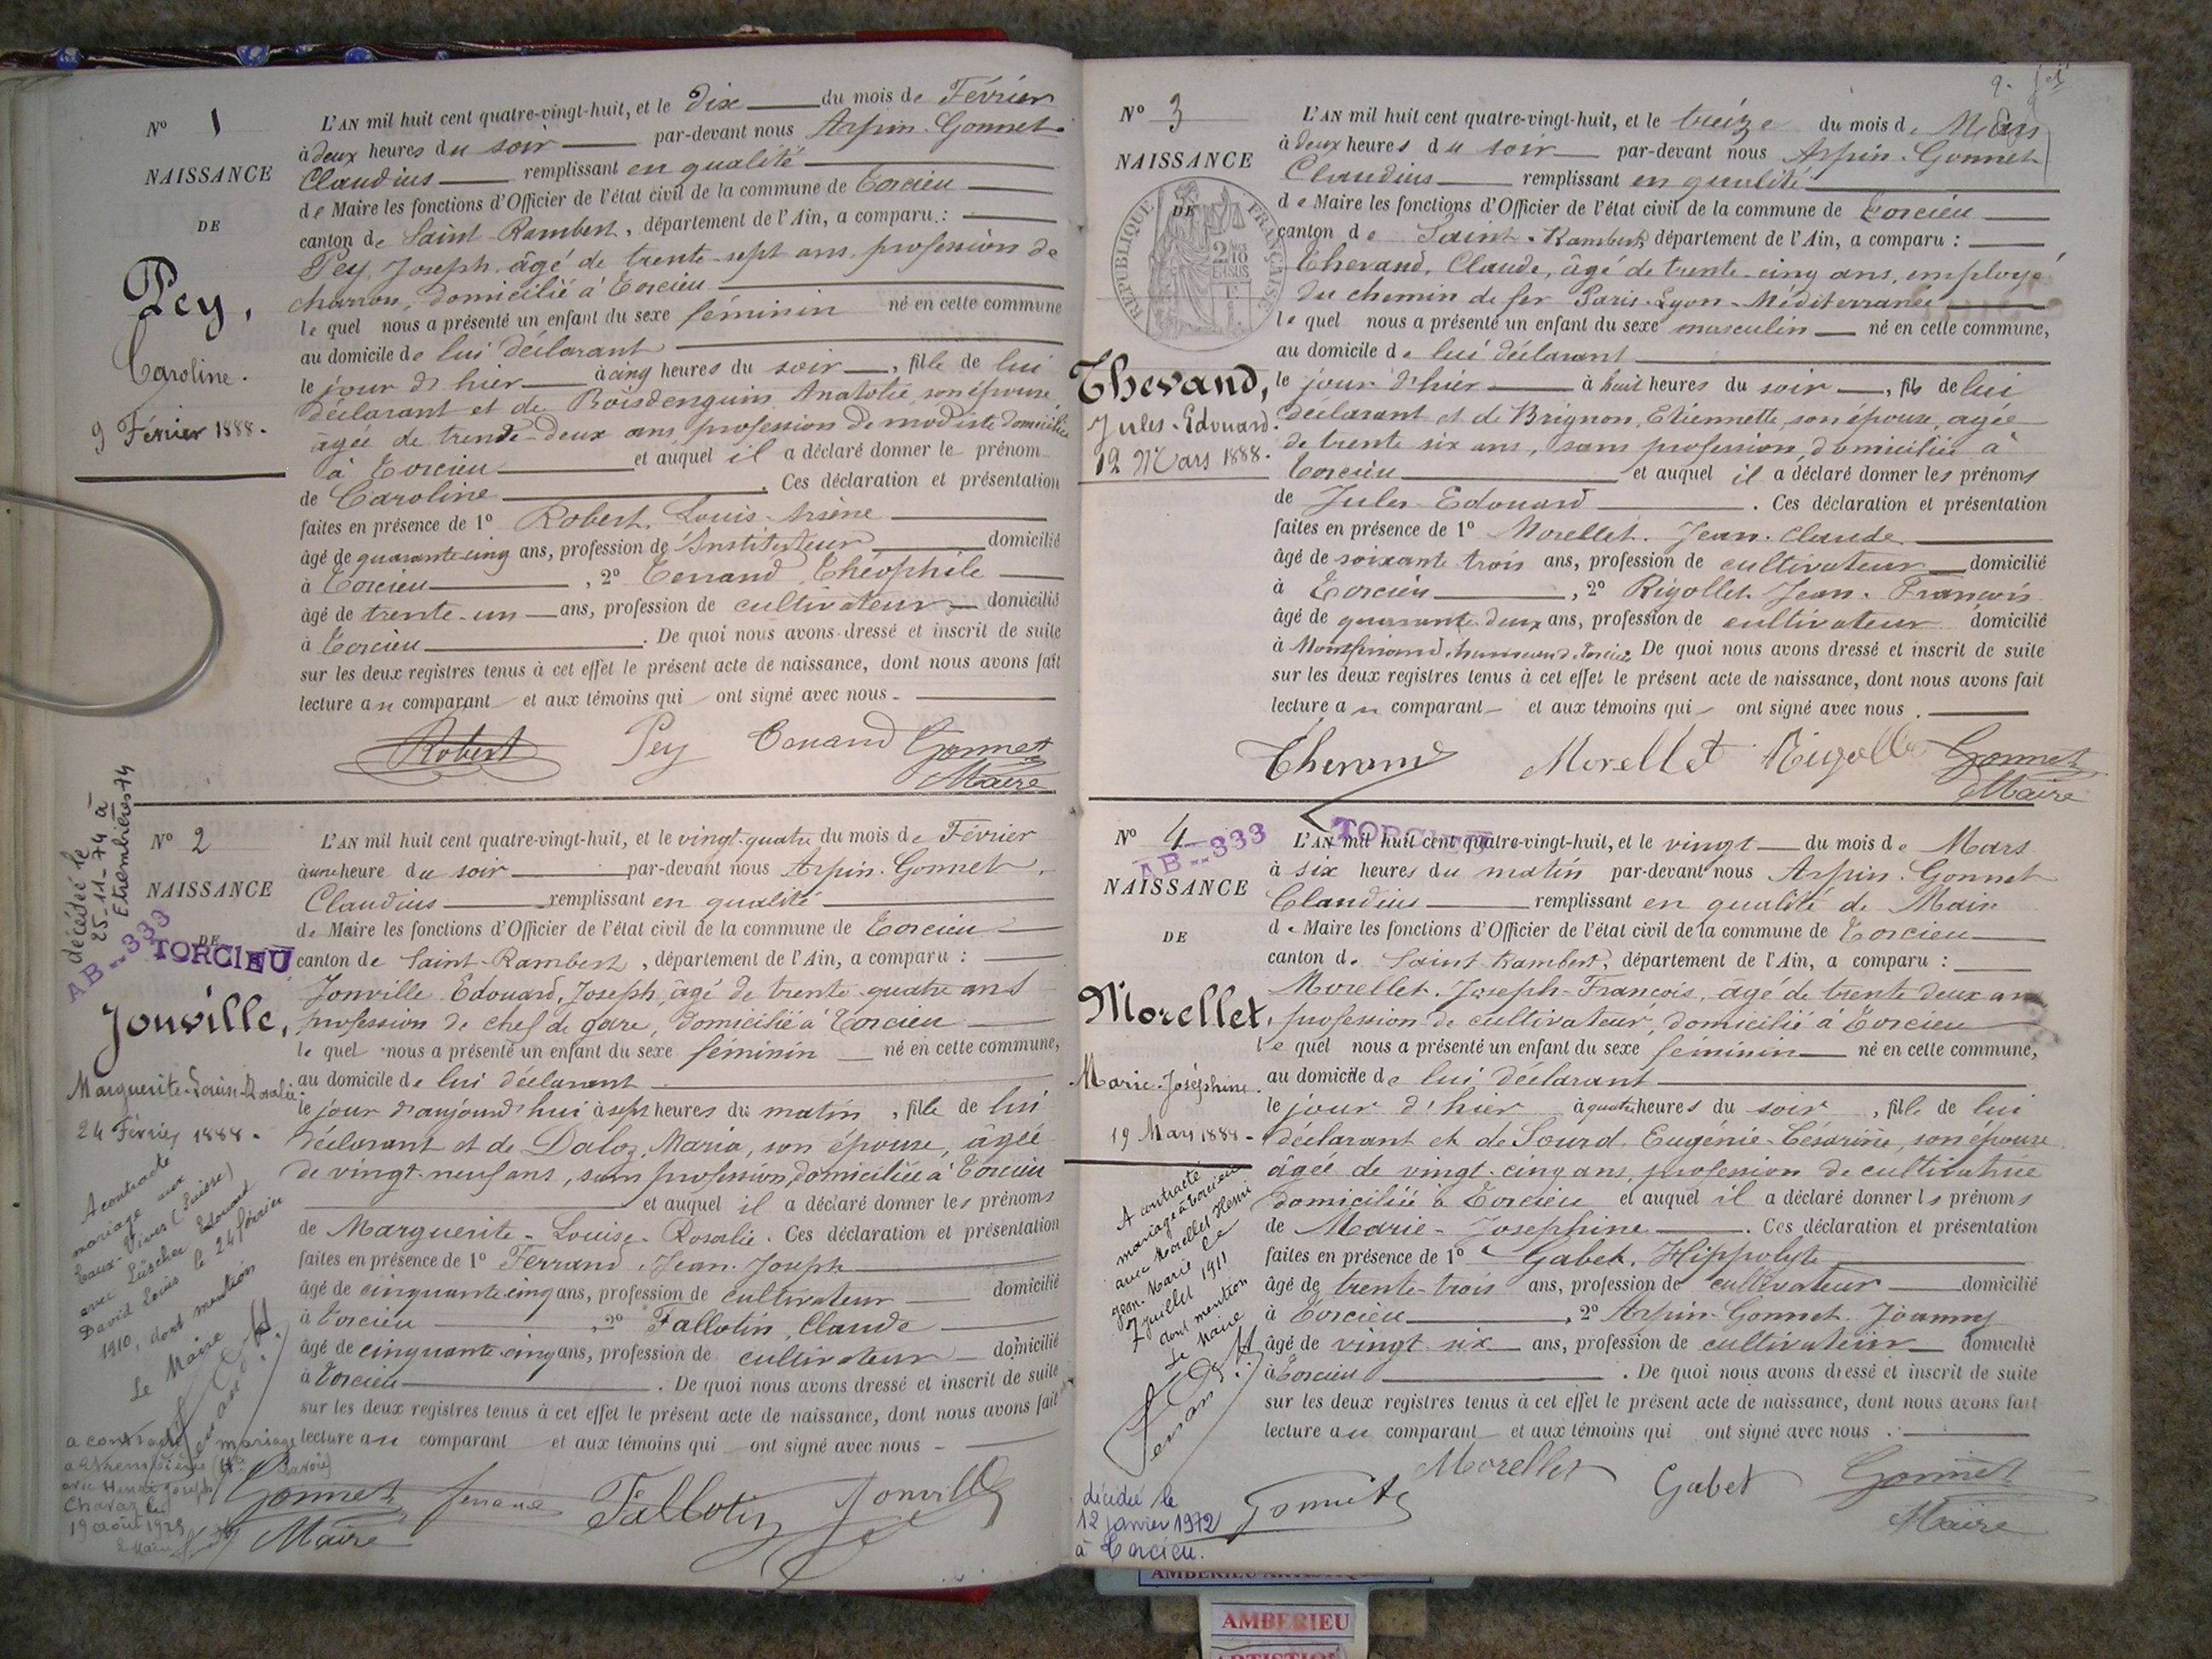 N° 1
NAISSANCE
DE
Pey,
Caroline.
9 Février 1888.
L'AN mil huit cent quatre-vingt-huit, et le dix du mois de Février
à deux heures du soir par-devant nous Arpin-Gonnet
Claudius remplissant en qualité
de Maire les fonctions d'Officier de l'état civil de la commune de Torcieu
canton de Saint-Rambert, département de l'Ain, a comparu :
Pey, Joseph, âgé de trente-sept ans, profession de
charron, domicilié à Torcieu
le quel nous a présenté un enfant du sexe féminin né en cette commune
au domicile de lui déclarant
le jour d'hier à cinq heures du soir, fille de lui
déclarant et de Boisdenguin Anatolie, son épouse
âgée de trente-deux ans, profession de modiste domiciliée
à Torcieu et auquel il a déclaré donner le prénom
de Caroline. Ces déclaration et présentation
faites en présence de 1° Robert, Louis-Arsène
âgé de quarante-cinq ans, profession de Instituteur domicilié
à Torcieu, 2° Terrand, Théophile
âgé de trente-un ans, profession de cultivateur domicilié
à Torcieu. De quoi nous avons dressé et inscrit de suite
sur les deux registres tenus à cet effet le présent acte de naissance, dont nous avons fait
lecture au comparant et aux témoins qui ont signé avec nous.
Robert Pey Gonnet
Maire
N° 2
NAISSANCE
DE
décédée le
25-11-74 à
Etrembières 74
AB--333
TORCIEU
Jonville,
Marguerite-Louise-Rosalie.
24 Février 1888.
A contracté
mariage aux
Eaux-Vives (Suisse)
avec Lüscher Edouard
David Louis le 24 février
1910, dont mention
Le Maire
a contracté mariage
à Etrembières (Hte Savoie)
avec Henri Joseph
Chavaz le
19 août 1925
L'AN mil huit cent quatre-vingt-huit, et le vingt-quatre du mois de Février
à une heure du soir par-devant nous Arpin-Gonnet,
Claudius remplissant en qualité
de Maire les fonctions d'Officier de l'état civil de la commune de Torcieu
canton de Saint-Rambert, département de l'Ain, a comparu :
Jonville Edouard, Joseph, âgé de trente-quatre ans
profession de chef de gare, domicilié à Torcieu
le quel nous a présenté un enfant du sexe féminin né en cette commune,
au domicile de lui déclarant
le jour d'aujourd'hui à sept heures du matin, fille de lui
déclarant et de Daloz, Maria, son épouse, âgée
de vingt-neuf ans, sans profession, domiciliée à Torcieu
et auquel il a déclaré donner les prénoms
de Marguerite-Louise-Rosalie. Ces déclaration et présentation
faites en présence de 1° Ferrand, Jean-Joseph
âgé de cinquante-cinq ans, profession de cultivateur domicilié
à Torcieu, 2° Fallotin, Claude
âgé de cinquante-cinq ans, profession de cultivateur domicilié
à Torcieu. De quoi nous avons dressé et inscrit de suite
sur les deux registres tenus à cet effet le présent acte de naissance, dont nous avons fait
lecture au comparant et aux témoins qui ont signé avec nous
Gonnet Ferrand Fallotin Jonville
Maire
N° 3
NAISSANCE
DE
RÉPUBLIQUE FRANÇAISE
Thevand,
Jules-Edouard.
12 Mars 1888.
L'AN mil huit cent quatre-vingt-huit, et le treize du mois de Mars
à deux heures du soir par-devant nous Arpin-Gonnet
Claudius remplissant en qualité
de Maire les fonctions d'Officier de l'état civil de la commune de Torcieu
canton de Saint-Rambert, département de l'Ain, a comparu :
Thevand, Claude, âgé de trente-cinq ans, employé
du chemin de fer Paris-Lyon-Méditerranée
le quel nous a présenté un enfant du sexe masculin né en cette commune,
au domicile de lui déclarant
le jour d'hier à huit heures du soir, fils de lui
déclarant et de Brignon, Etiennette, son épouse, agée
de trente six ans, sans profession, domiciliée à
Torcieu et auquel il a déclaré donner les prénoms
de Jules-Edouard. Ces déclaration et présentation
faites en présence de 1° Morellet, Jean-Claude
âgé de soixante trois ans, profession de cultivateur domicilié
à Torcieu, 2° Rigollet, Jean-François
âgé de quarante-deux ans, profession de cultivateur domicilié
à Montferrand, hameau de Torcieu. De quoi nous avons dressé et inscrit de suite
sur les deux registres tenus à cet effet le présent acte de naissance, dont nous avons fait
lecture au comparant et aux témoins qui ont signé avec nous.
Thevand Morellet Rigollet Gonnet
Maire
N° 4
AB--333
TORCIEU
NAISSANCE
DE
Morellet,
Marie-Joséphine.
19 Mars 1888
A contracté
mariage à Torcieu
avec Morellet Henri
Jean-Marie le
7 juillet 1911
dont mention
Le Maire
décédée le
12 janvier 1972
à Torcieu.
L'AN mil huit cent quatre-vingt-huit, et le vingt du mois de Mars
à six heures du matin par-devant nous Arpin-Gonnet
Claudius remplissant en qualité de Maire
de Maire les fonctions d'Officier de l'état civil de la commune de Torcieu
canton de Saint Rambert, département de l'Ain, a comparu :
Morellet, Joseph-François, agé de trente deux ans
profession de cultivateur, domicilié à Torcieu
le quel nous a présenté un enfant du sexe féminin né en cette commune,
au domicile de lui déclarant
le jour d'hier à quatre heures du soir, fille de lui
déclarant et de Sourd, Eugénie-Césarine, son épouse
âgée de vingt-cinq ans, profession de cultivatrice
domiciliée à Torcieu et auquel il a déclaré donner ls prénoms
de Marie-Josephine. Ces déclaration et présentation
faites en présence de 1° Gabet, Hippolyte
âgé de trente-trois ans, profession de cultivateur domicilié
à Torcieu, 2° Arpin-Gonnet, Joanny
âgé de vingt six ans, profession de cultivateur domicilié
à Torcieu. De quoi nous avons dressé et inscrit de suite
sur les deux registres tenus à cet effet le présent acte de naissance, dont nous avons fait
lecture au comparant et aux témoins qui ont signé avec nous.
Gonnet Morellet Gabet Gonnet
Maire
AMBERIEU ARTISTIQUE
AMBERIEU